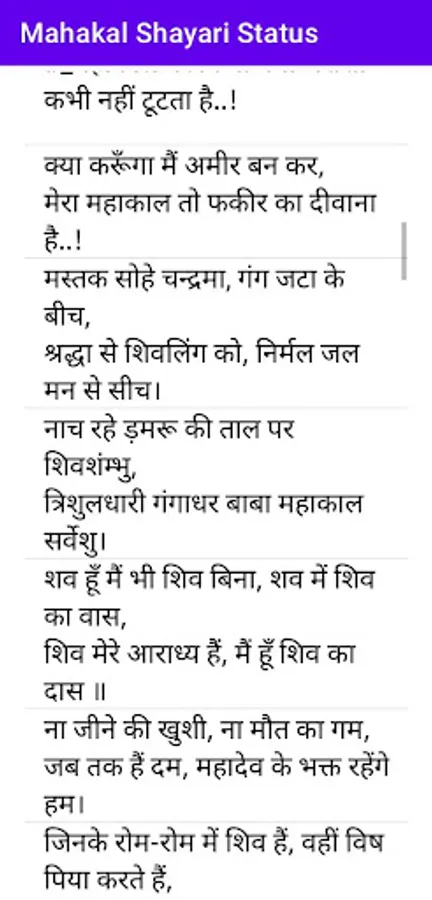 Mahakal Shayari Status
कभी नहीं टूटता है..!
क्या करूँगा मैं अमीर बन कर,
मेरा महाकाल तो फकीर का दीवाना
है..!
मस्तक सोहे चन्द्रमा, गंग जटा के
बीच,
श्रद्धा से शिवलिंग को, निर्मल जल
मन से सीच।
नाच रहे ड़मरू की ताल पर
शिवशंम्भु,
त्रिशुलधारी गंगाधर बाबा महाकाल
सर्वेशु।
शव हूँ मैं भी शिव बिना, शव में शिव
का वास,
शिव मेरे आराध्य हैं, मैं हूँ शिव का
दास ॥
ना जीने की खुशी, ना मौत का गम,
जब तक हैं दम, महादेव के भक्त रहेंगे
हम।
जिनके रोम-रोम में शिव हैं, वहीं विष
पिया करते हैं,